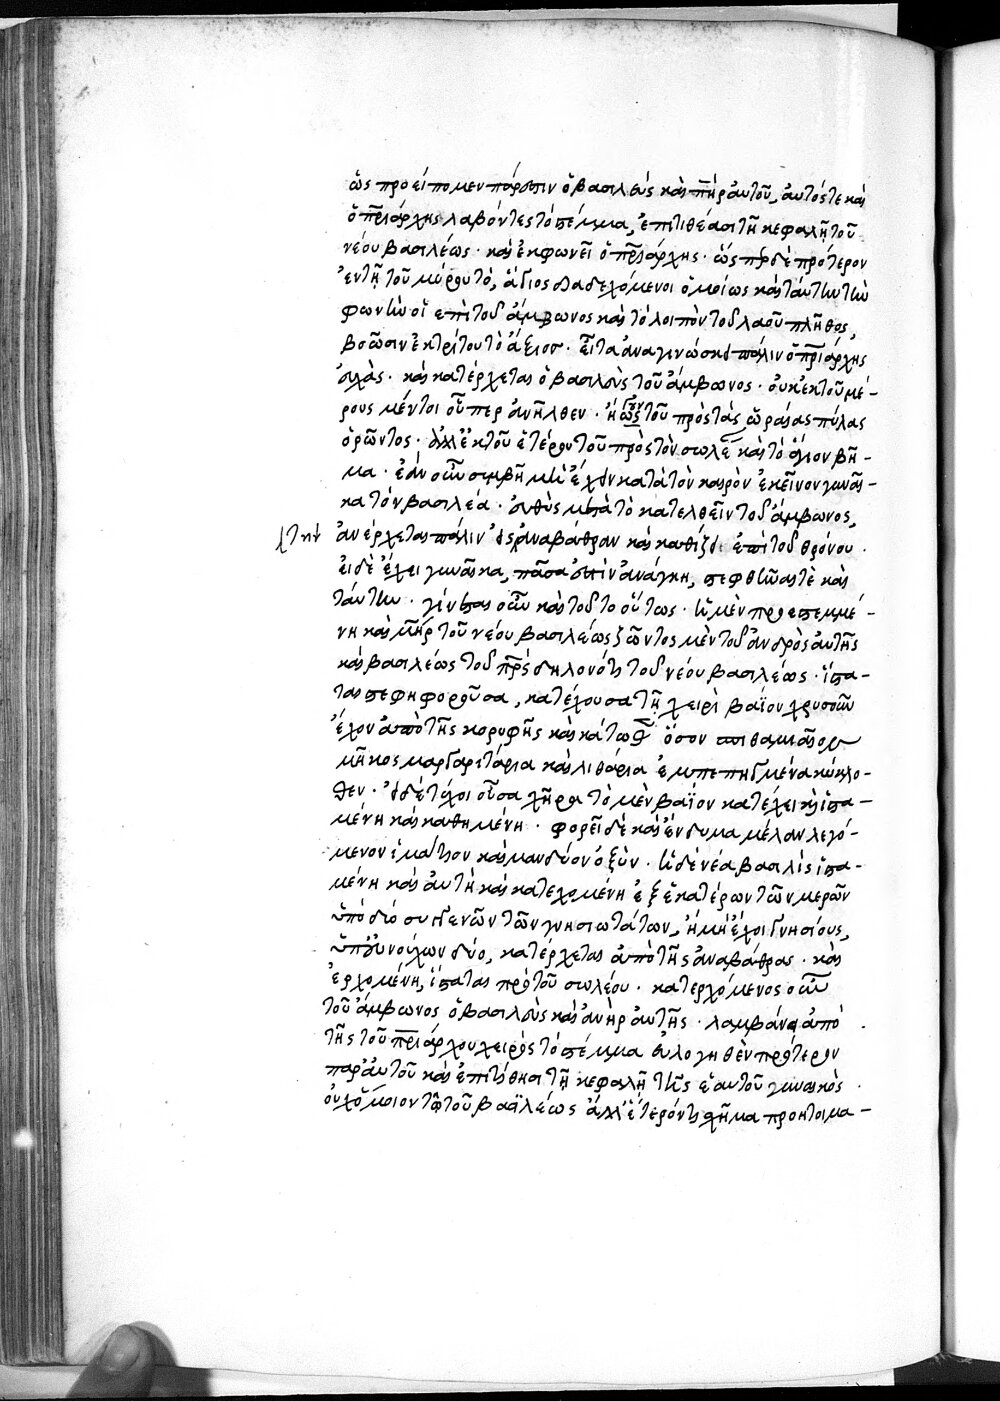 ὡς προείπομεν πάρεστιν ὁ βασιλεὺς καὶ πηρ αὐτοῦ, αὐτός τε καὶ
ὁ πριάρχης λαβόντες τὸ στέμμα, ἐπιτιθέασι τῇ κεφαλῇ τοῦ
νέου βασιλέως· καὶ ἐκφωνεῖ ὁ πριάρχης· ὡς δὲ πρότερον
ἐν τῇ τοῦ μύρου τὸ, ἅγιος διαδεχόμενοι ὁμοίως καὶ ταύτην τὴν
φωνὴν οἱ ἐπὶ τοῦ ἄμβωνος καὶ τὸ λοιπὸν τοῦ λαοῦ πλῆθος,
βοῶσιν ἐκ τρίτου τὸ ἄξιος· εἶτα ἀναγινώσκει πάλιν ὁ πριάρχης
εὐχὰς· καὶ κατέρχεται ὁ βασιλεὺς τοῦ ἄμβωνος· οὐκ ἐκ τοῦ μέ-
ρους μέντοι οὗπερ ἀνῆλθεν· ἤγουν τοῦ πρὸς τὰς ὡραίας πύλας
ὁρῶντος· ἀλλ' ἐκ τοῦ ἑτέρου τοῦ πρὸς τὸν σωλέα καὶ τὸ ἅγιον βῆ-
μα· ἐὰν οὖν συμβῇ μὴ ἔχειν κατὰ τὸν καιρὸν ἐκεῖνον γυναῖ-
κα τὸν βασιλέα· εὐθὺς μετὰ τὸ κατελθεῖν τοῦ ἄμβωνος,
ἀνέρχεται πάλιν εἰς ἀναβάθραν καὶ καθίζει ἐπὶ τοῦ θρόνου.
εἰ δὲ ἔχει γυναῖκα, πᾶσα ἐστὶν ἀνάγκη, στεφθῆναί τε καὶ
ταύτην· γίνεται οὖν καὶ τοῦτο οὕτως· ἡ μὲν προεστεμμέ-
νη καὶ μηρ τοῦ νέου βασιλέως ζῶντος μὲν τοῦ ἀνδρὸς αὐτῆς
καὶ βασιλέως τοῦ πρς δηλονότι τοῦ νέου βασιλέως· ἵστα-
ται στεφηφοροῦσα, κατέχουσα τῇ χειρὶ βαΐον χρυσοῦν
ἔχον ἀπὸ τῆς κορυφῆς καὶ κάτωθεν ὅσον σπιθαμιαῖον
μῆκος μαργαριτάρια καὶ λιθάρια ἐμπεπηγμένα κύκλο-
θεν· εἰ δὲ τύχοι οὖσα χήρα τὸ μὲν βαΐον κατέχει καὶ ἱστα-
μένη καὶ καθημένη· φορεῖ δὲ καὶ ἔνδυμα μέλαν λεγό-
μενον ἱμάτιον καὶ μανδύον ὀξύν· ἡ δὲ νέα βασιλὶς ἱστα-
μένη καὶ αὐτὴ καὶ κατεχομένη ἐξ ἑκατέρων τῶν μερῶν
ὑπὸ δύο συγγενῶν τῶν γνησιωτάτων, ἢ μὴ ἔχοι γνησίους,
ὑπ' εὐνούχων δύο, κατέρχεται ἀπὸ τῆς ἀναβάθρας· καὶ
ἐρχομένη, ἵσταται πρὸ τοῦ σωλέου· κατερχόμενος οὖν
τοῦ ἄμβωνος ὁ βασιλεὺς καὶ ἀνὴρ αὐτῆς· λαμβάνει ἀπὸ
τῆς τοῦ πριάρχου χειρὸς τὸ στέμμα εὐλογηθὲν πρότερον
παρ' αὐτοῦ καὶ ἐπιτίθησι τῇ κεφαλῇ τῆς ἑαυτοῦ γυναικὸς·
οὐχ ὅμοιον τῷ τοῦ βασιλέως ἀλλ' ἕτερόν τι σχῆμα προητοιμα-